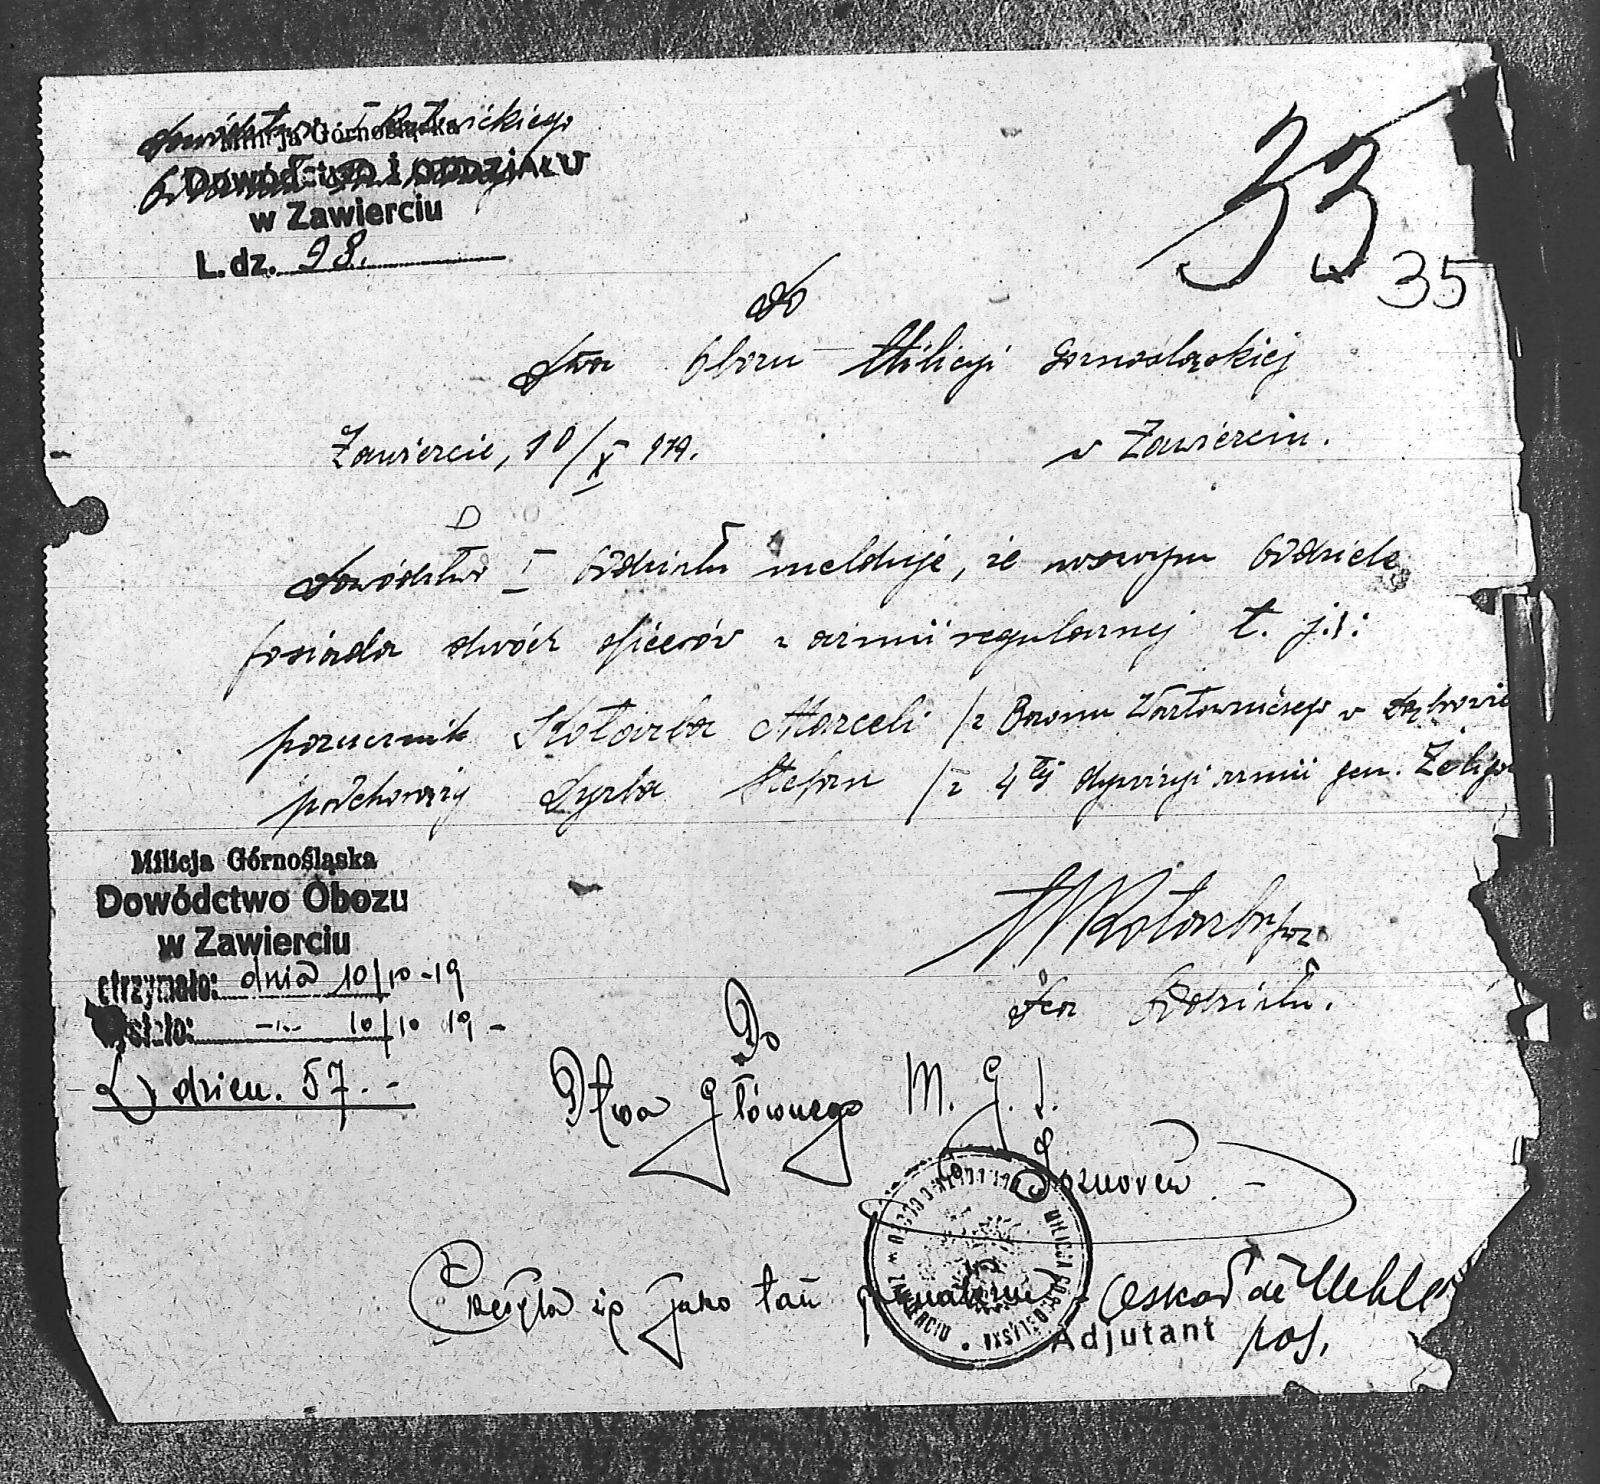 Milicja Górnośląska
Dowództwo I ODDZIAŁU
w Zawierciu
L. dz. 98.
33
35
Do
Dtwa Obozu Milicyi Gornosląskiej
Zawiercie, 10/X 919.
w Zawierciu.
Dowództwo I Oddziału melduje, że w swym Oddziele
posiada dwóch oficerów z armii regularnej t. j.:
porucznik Kotarba Marceli /z Baonu Wartowniczego w
podchorąży Syrba Stefan /z 4tej dywizyi armii gen. Żelig
MKotarba por.
Dca Oddziału.
Milicja Górnośląska
Dowództwo Obozu
w Zawierciu
otrzymało: dnia 10/10-19
wysłało: -„- 10/10 19-
L dzien. 57.-
Do
Dtwa Głównego M. G. Śl.
Sosnowcu
MILICJA GÓRNOŚLĄSKA
Przesyła się jako tam
Adjutant